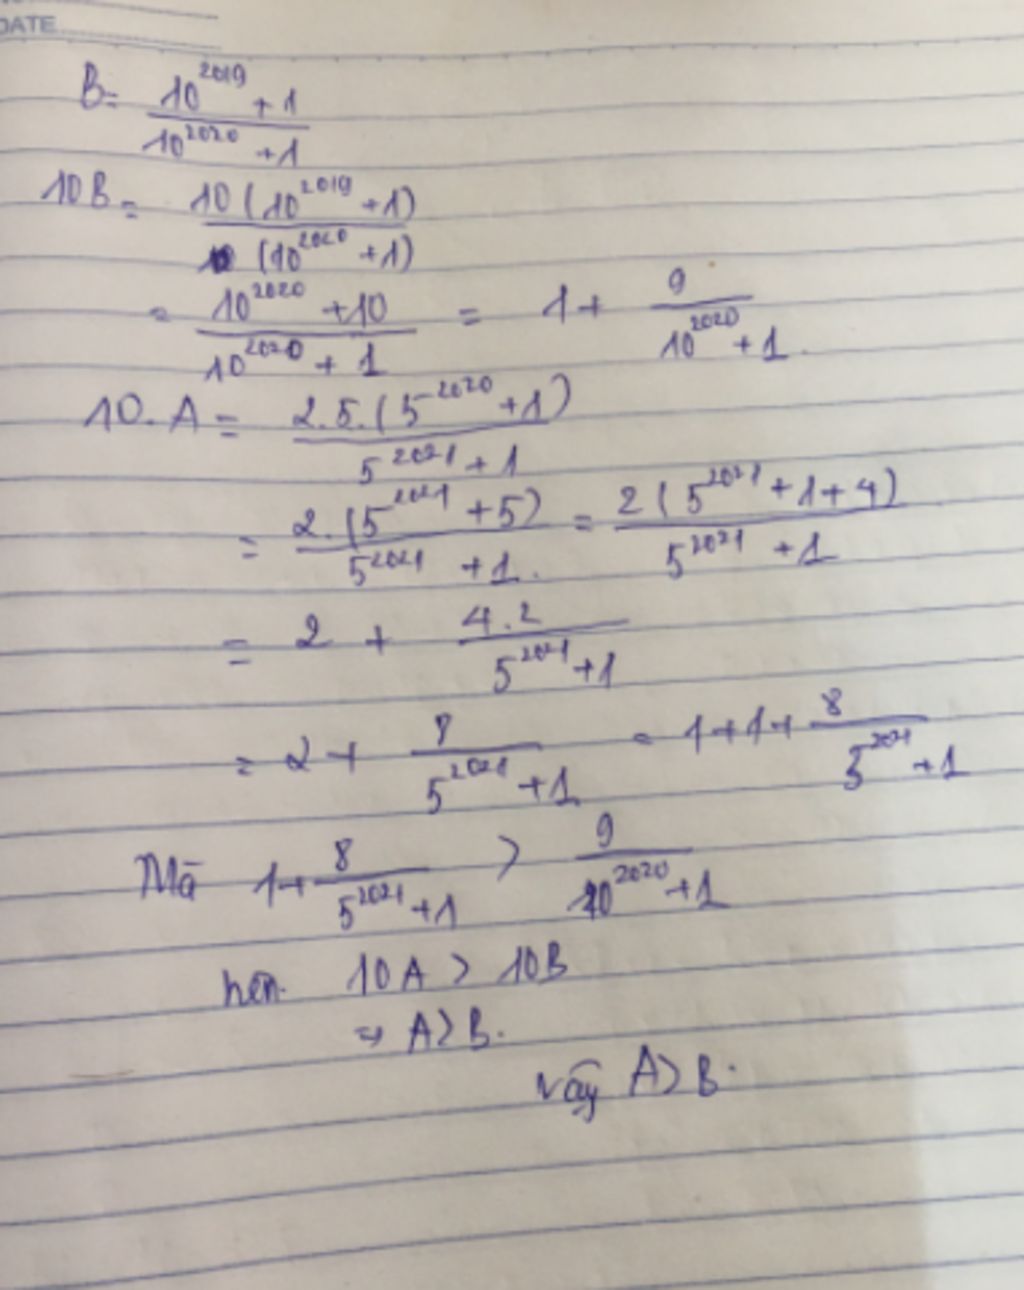 DATE
B = \frac{10^{2019} + 1}{10^{2020} + 1}
10B = \frac{10(10^{2019} + 1)}{(10^{2020} + 1)}
= \frac{10^{2020} + 10}{10^{2020} + 1} = 1 + \frac{9}{10^{2020} + 1}.
10. A = \frac{2.5.(5^{2020} + 1)}{5^{2021} + 1}
= \frac{2.(5^{2021} + 5)}{5^{2021} + 1.} = \frac{2(5^{2021} + 1 + 4)}{5^{2021} + 1}
= 2 + \frac{4.2}{5^{2021} + 1}
= 2 + \frac{8}{5^{2021} + 1} = 1 + 1 + \frac{8}{5^{2021} + 1}
Mà 1 + \frac{8}{5^{2021} + 1} > \frac{9}{10^{2020} + 1}
nên 10A > 10B
⇒ A > B.
vậy A > B.